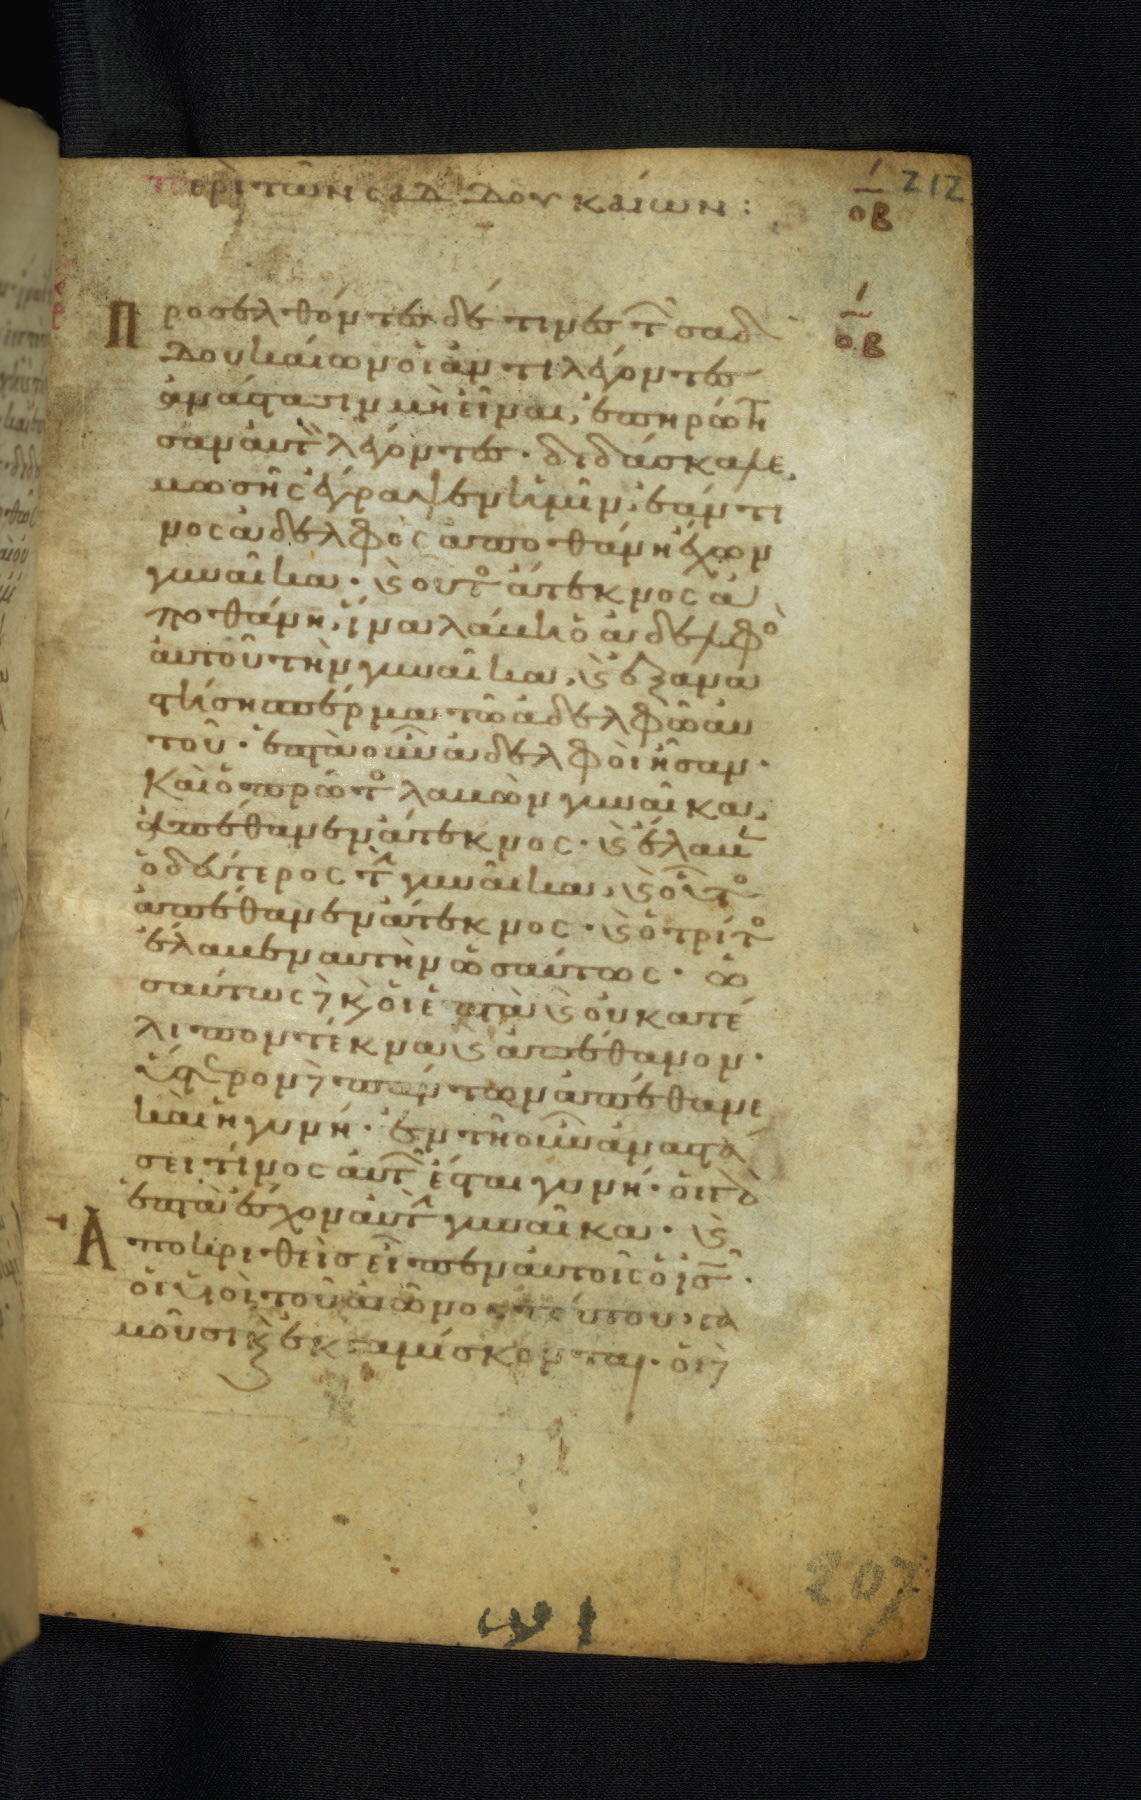 περὶ τῶν σαδδουκαίων:
212
οβ
Προσελθόντες δέ τινες τ σαδ
οβ
δουκαίων οἱ ἀντιλέγοντες
ἀνάστασιν μὴ εἶναι, ἐπηρώτη
σαν αὐτ λέγοντες· διδάσκαλε,
μωσῆς ἔγραψεν ἡμῖν, ἐάν τι
νος ἀδελφὸς ἀποθάνη ἔχων
γυναῖκα· ϗ οὗτο ἄτεκνος ἀ
ποθάνη, ἵνα λάβη ὁ ἀδελφὸ
αὐτοῦ τὴν γυναῖκα, ϗ ἐξανα
στήση σπέρμα τῶ ἀδελφῶ αὐ
τοῦ· ἑπτὰ οὖν ἀδελφοὶ ἦσαν·
Καὶ ὁ πρῶτο λαβὼν γυναῖκα,
ἀπέθανεν ἄτεκνος· ϗ ἔλαβ
ὁ δεύτερος τ γυναῖκα, ϗ οὗτο
ἀπέθανεν ἄτεκνος· ϗ ὁ τρίτο
ἔλαβεν αὐτὴν ὡσαύτως· ὡ
σαύτως δὲ κ οἱ ἑπτὰ ϗ οὐ κατέ
λιπον τέκνα ϗ ἀπέθανον·
ὕστερον δὲ πάντων ἀπέθανε
καὶ ἡ γυνή· ἐν τῆ οὖν ἀναστά
σει τίνος αὐτ ἔσται γυνή· οἱ γὰρ
ἑπτὰ ἔσχον αὐτ γυναῖκα· ϗ
Ἀποκριθεὶς εἶπεν αὐτοῖς ὁ ις·
οἱ υἱοὶ τοῦ αἰῶνος τούτου, γα
μοῦσι κ ἐκγαμίσκονται· οἱ δὲ
207